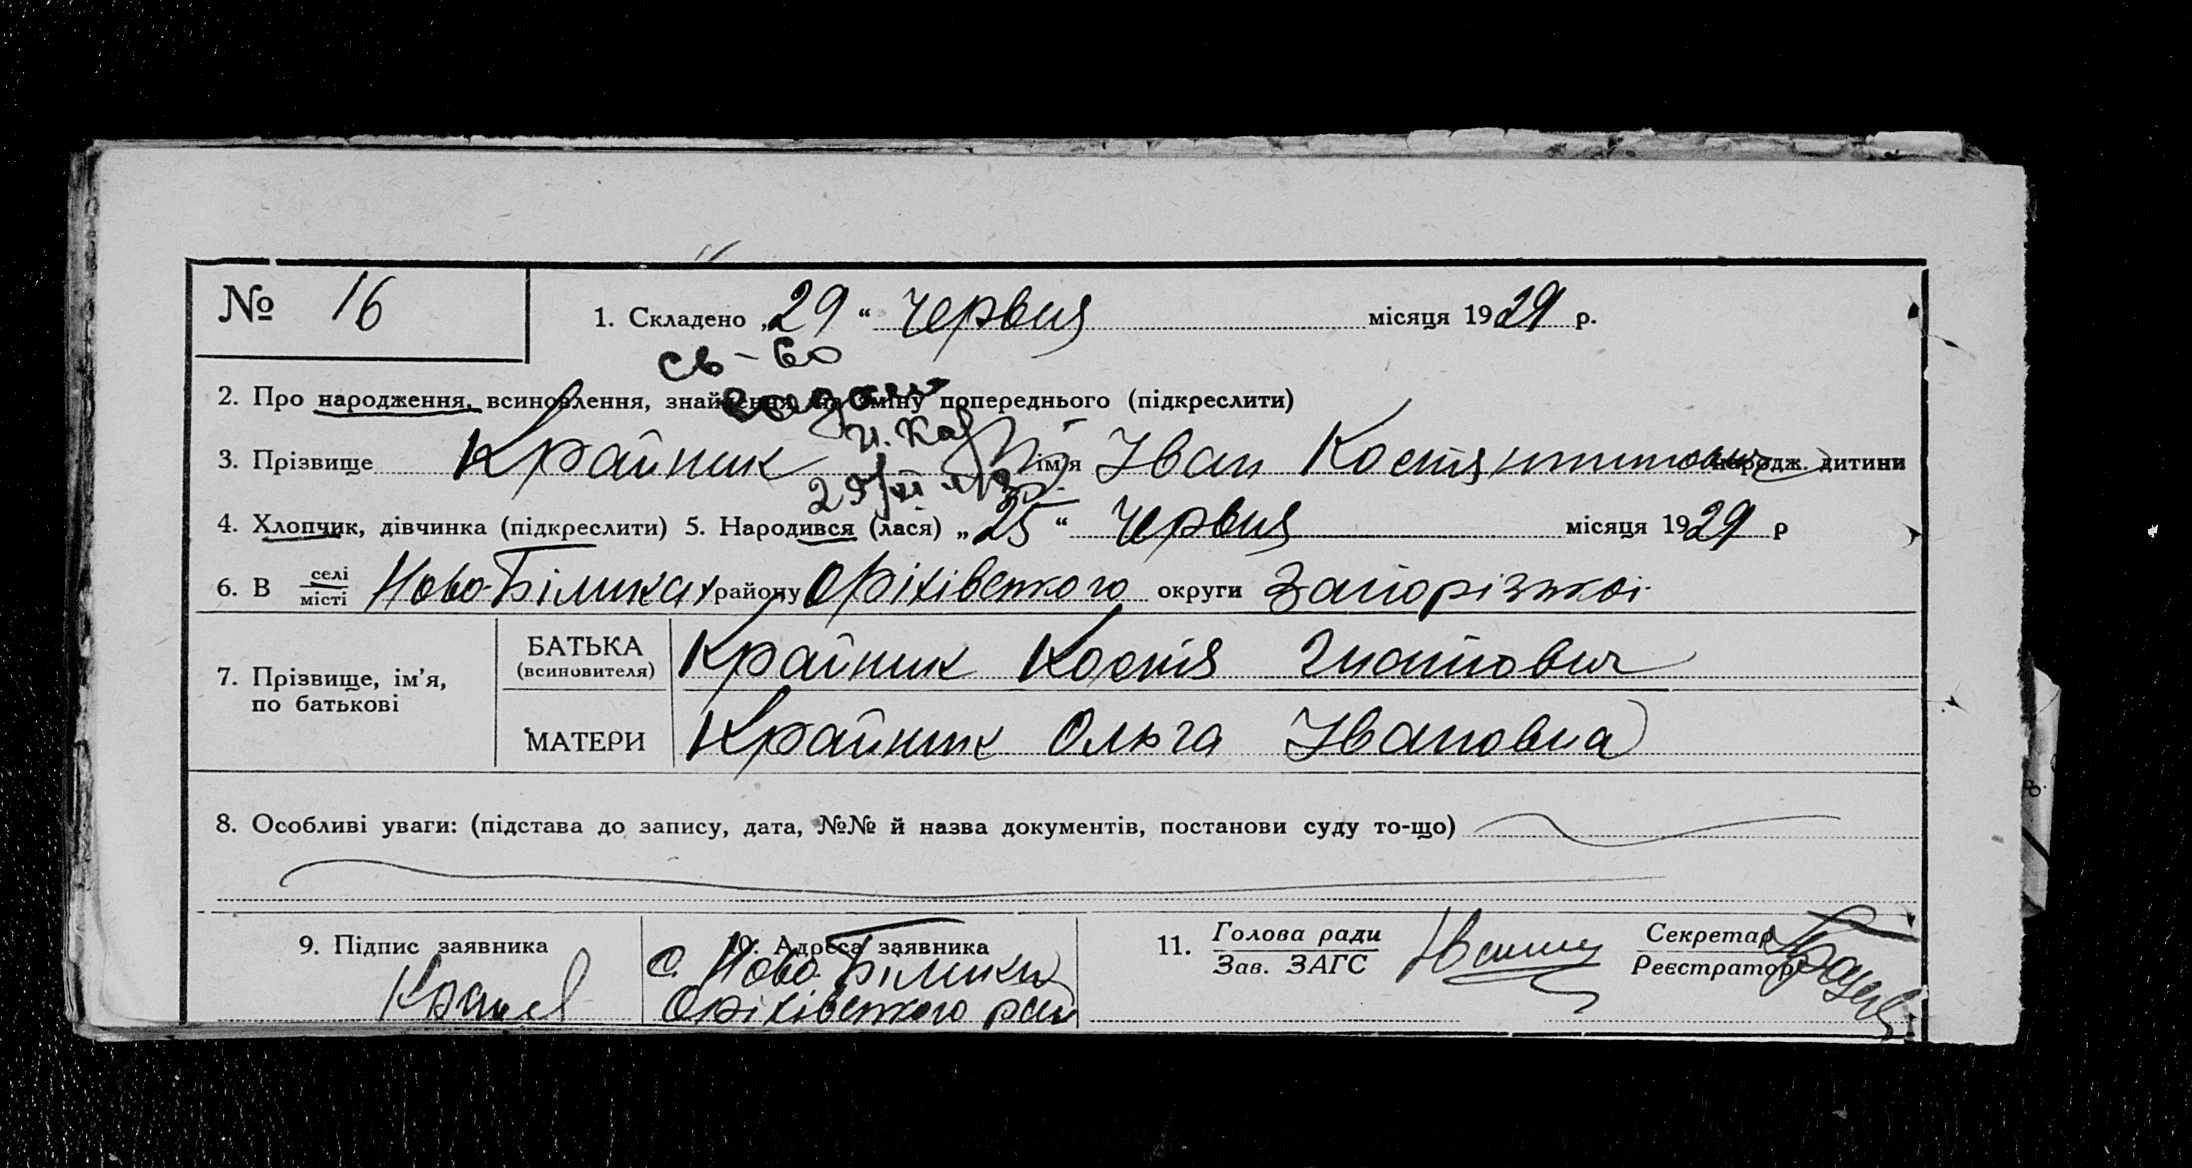 № 16
1. Складено „29“ Червня місяця 1929 р.
св-во
2. Про народження, всиновлення, знайдення, про зміну попереднього (підкреслити)
3. Прізвище Крайник ім'я Іван Костянтинович народж. дитини
4. Хлопчик, дівчинка (підкреслити) 5. Народився (лася) „25“ Червня місяця 1929 р
6. В селі
місті Ново-Біликах району Оріхівського округи Запорізької
7. Прізвище, ім'я,
по батькові
БАТЬКА
(всиновителя) Крайник Костя Гнатович
МАТЕРИ Крайник Ольга Івановна
8. Особливі уваги: (підстава до запису, дата, №№ й назва документів, постанови суду то-що)
9. Підпис заявника
10. Адреса заявника
с. Ново-Білики
Оріхівського рай
11. Голова ради
Зав. ЗАГС
Секретар
Реєстратор